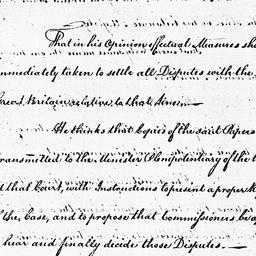 That in his Opinion effectual Measures sh
mmediately taken to settle all Disputes with the
Great Britain relative to that Line—
He thinks that Copies of the said Papers
transmitted to the Minister Plenipotentiary of the
d that Court, with Instructions to present a proper M
of the Case, and to propose that Commissioners be a
hear and finally decide those Disputes.—